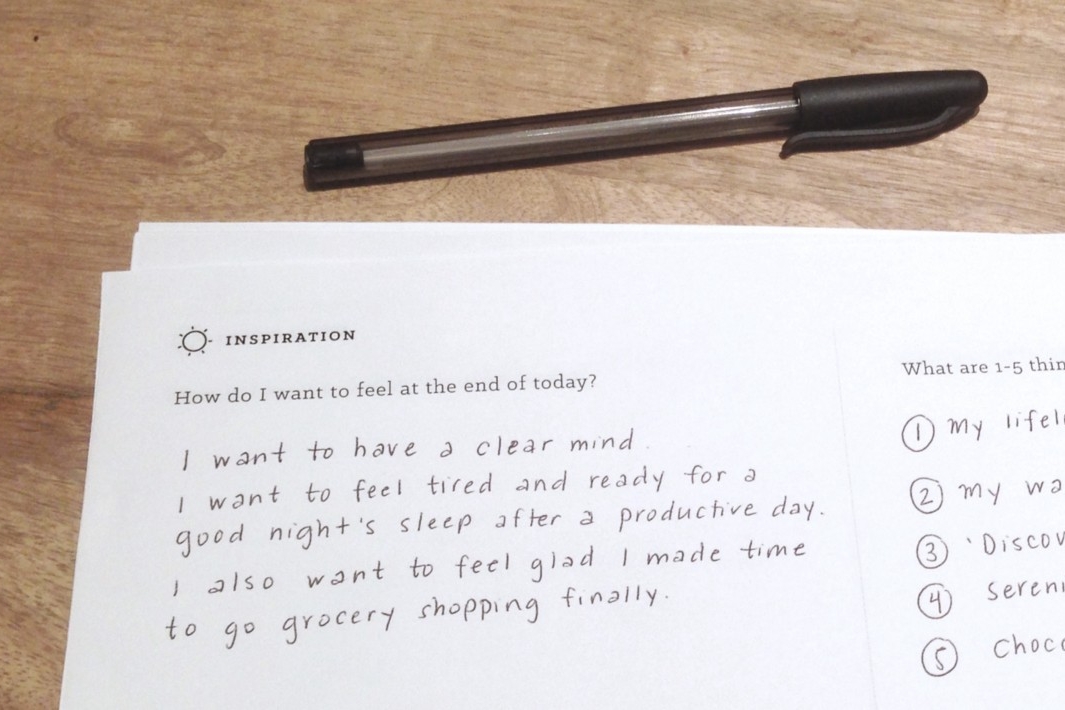 INSPIRATION
How do I want to feel at the end of today?
I want to have a clear mind.
I want to feel tired and ready for a
good night's sleep after a productive day.
I also want to feel glad I made time
to go grocery shopping finally.
What are 1-5
1 my
2 my
3
4
5